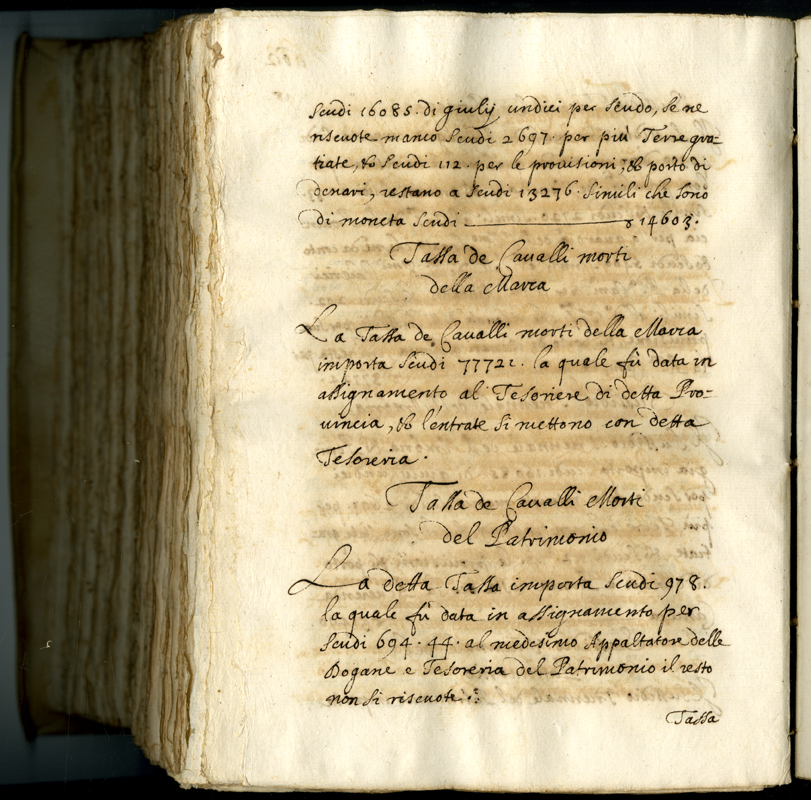 scudi 16085. di giulij undici per scudo, se ne
riscuote manco scudi 2697. per più Terre gra=
tiate, & scudi 112. per le provisioni, & porto di
denari, restano a scudi 13276. simili che sono
di moneta scudi ———— 14603.
Tassa de Cavalli morti
della Marca
La Tassa de Cavalli morti della Marca
importa scudi 7772 la quale fù data in
assignamento al Tesoriere di detta Pro=
vincia, & l'entrate si mettono con detta
Tesoreria.
Tassa de Cavalli Morti
del Patrimonio
La detta Tassa importa scudi 978.
la quale fù data in assignamento per
scudi 694.44. al medesimo Appaltatore delle
Dogane e Tesoreria del Patrimonio il resto
non si riscuote.
Tassa